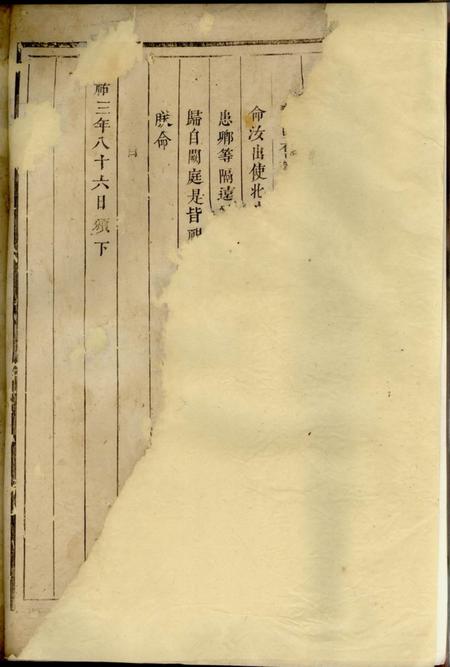 命汝出使北
患鄉等隔遠
歸自闕庭是皆祖
朕命
三年八十六日頒下